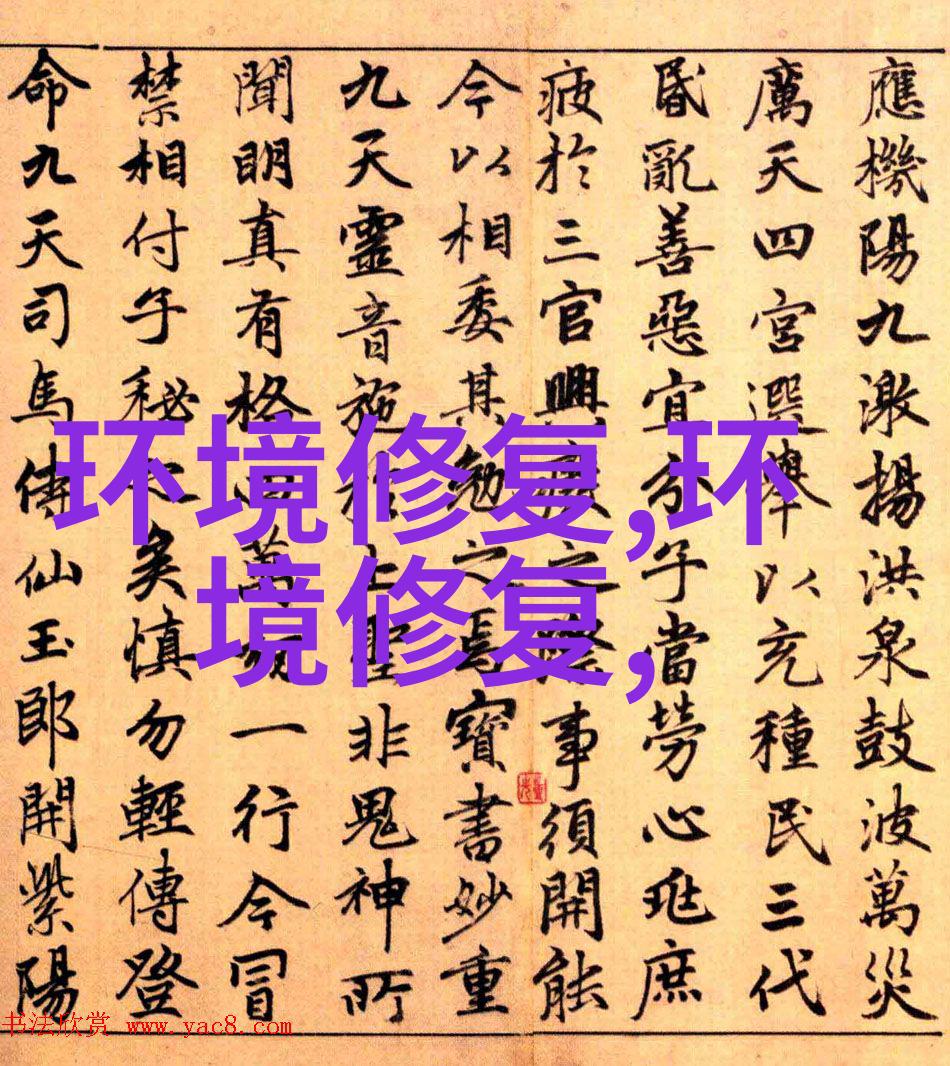 應機陽九激揚洪泉鼓波萬災
厲天四宮選舉以充種民三代
昏亂善惡宜分子當勞心咗庶
疲於三官興廢之際事須開能
今以相委其勉之焉寶書妙重
九天靈音施於上聖非鬼神所
聞明真有格四萬劫一行今冒
禁相付子秘之矣慎勿輕傳登
命九天司馬侍仙玉郎開紫陽
环境修复,环
境修复,
书法欣赏 www.yac8.com